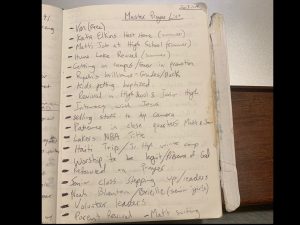 Master Prayer List
- Van (Free)
- Katie Elkins Host Home (summer)
- Matt's Job at High School (summer)
- Hume Lake Revival (summer)
- Getting on campus/favor in promotion
- brilliance - Grades/
- Kids getting baptized
- Revival in High School & Junior High
- Intimacy with Jesus
- selling stuff to camera
- Patience in close quarters Matt & Jen
- Lakers NBA Title
- Haiti Trip/Jr. High winter camp
- Worship to be legit/Presence of God
- Renewed in Prayer
- Senior class stepping up/leaders
- Blanton/Brielle (senior girls)
- Volunteer leaders
- Parent Revival - Matt's writing